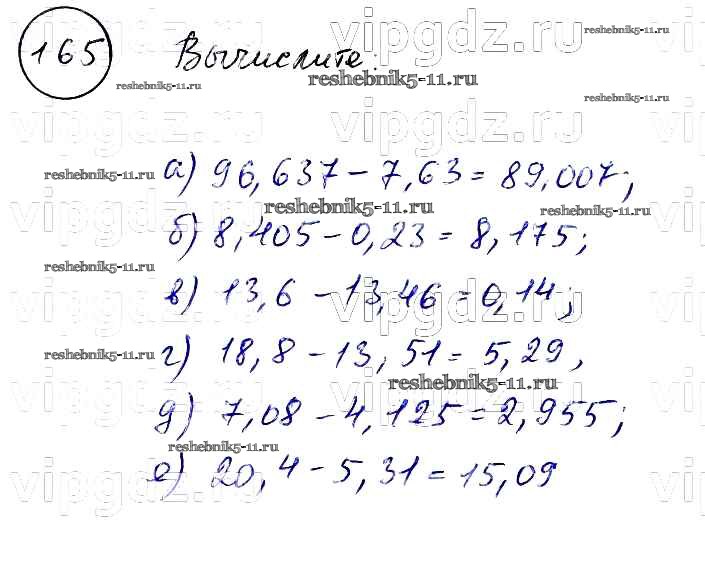 vipgdz.ru vipgdz.ru reshebnik5-11.ru
165 Вычислите:
reshebnik5-11.ru reshebnik5-11.ru
reshebnik5-11.ru
vipgdz.ru vipgdz.ru vi
а) 96,637 - 7,63 = 89,007;
reshebnik5-11.ru
reshebnik5-11.ru reshebnik5-11.ru
vipgdz.ru vipgdz.ru vi
б) 8,405 - 0,23 = 8,175;
reshebnik5-11.ru
в) 13,6 - 13,46 = 0,14;
vipgdz.ru vipgdz.ru vi
г) 18,8 - 13,51 = 5,29,
reshebnik5-11.ru
reshebnik5-11.ru
vipgdz.ru vipgdz.ru vi
д) 7,08 - 4,125 = 2,955;
reshebnik5-11.ru
е) 20,4 - 5,31 = 15,09
vipgdz.ru vipgdz.ru vi